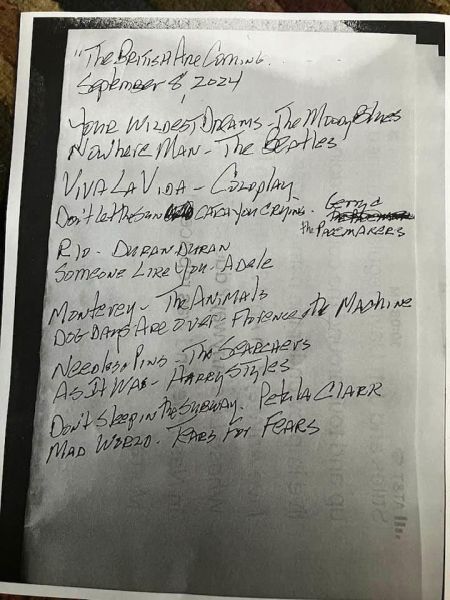 "The British Are Coming.
September 8, 2024
Your Wildest Dreams - The Moody Blues
Nowhere Man - The Beatles
Viva La Vida - Coldplay
Don't Let the Sun Catch You Crying. Gerry &
the Pacemakers
Rio - Duran Duran
Someone Like You - Adele
Monterey - The Animals
Dog Days Are Over - Florence + the Machine
Needles + Pins - The Searchers
As It Was - Harry Styles
Don't Sleep in the Subway. Petula Clark
Mad World - Tears For Fears